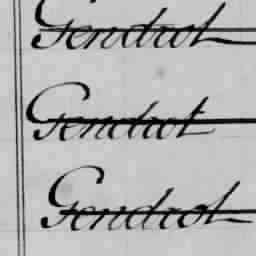 Gendrot
Gendrot
Gendrot